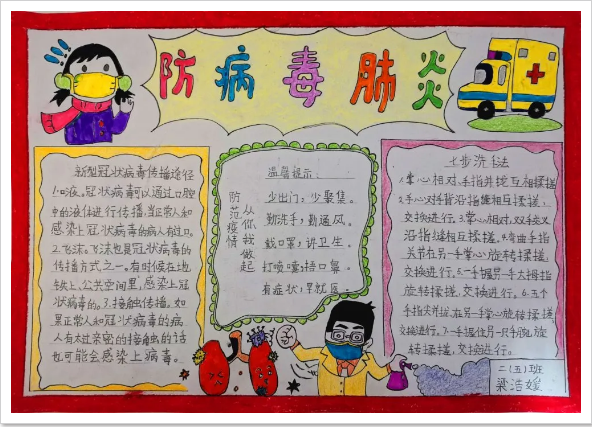 防病毒肺炎
新型冠状病毒传播途径
1.口液。冠状病毒可以通过口腔
中的液体进行传播,当正常人和
感染上冠状病毒的病人有过口。
2.飞沫。飞沫也是冠状病毒的
传播方式之一。有时候在地
铁上、公共空间里,感染上冠
状病毒的。3.接触传播。如
果正常人和冠状病毒的病
人有太过亲密的接触的话
也可能会感染上病毒。
防范疫情
从你我做起
温馨提示:
少出门,少聚集。
勤洗手,勤通风。
戴口罩,讲卫生。
打喷嚏,捂口鼻。
有症状,早就医。
七步洗手法
1.掌心相对,手指并拢互相揉搓,
2.手心对手背沿指缝相互揉搓,
交换进行。3.掌心相对,双手交叉
沿指缝相互揉搓。4.弯曲手指
关节在另一手掌心旋转揉搓,
交换进行。5.一手握另一手大拇指
旋转揉搓,交换进行。6.五个
手指尖并拢,在另一掌心旋转揉搓,
交换进行。7.一手握住另一只手腕,旋
转揉搓,交换进行。
二(五)班
梁洁媛